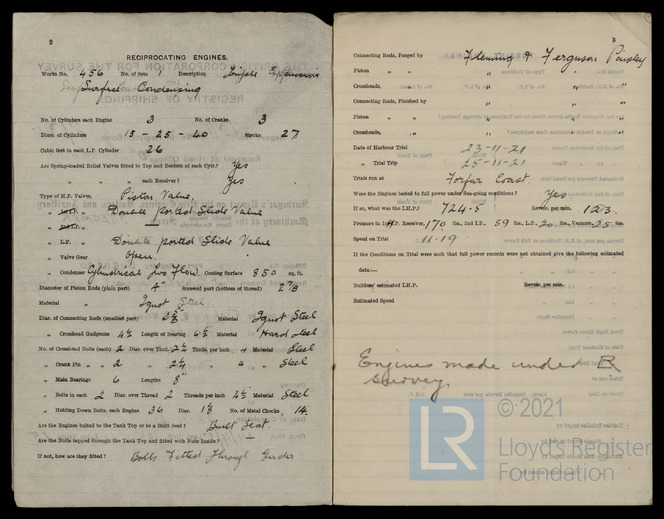 2
RECIPROCATING ENGINES.
Works No. 456 No. of Sets 1 Description Triple Expansion
Surface Condensing
No. of Cylinders each Engine 3 No. of Cranks 3
Diars of Cylinders 15 - 25 - 40 Stroke 27
Cubic feet in each L.P. Cylinder 26
Are Spring-loaded Relief Valves fitted to Top and Bottom of each Cylr.? Yes
" " each Receiver? Yes
Type of H.P. Valves, Piston Valve,
" Double ported Slide Valve
"
" L.P. " Double ported Slide Valve
" Valve Gear Open.
" Condenser Cylindrical Two Flow, Cooling Surface 850 sq. ft.
Diameter of Piston Rods (plain part) 4" Screwed part (bottom of thread) 2 7/8
Material " Ingot Steel
Diar. of Connecting Rods (smallest part) Material Ingot Steel
" Crosshead Gudgeons 4½ Length of Bearing Material Hard Steel
No. of Crosshead Bolts (each) 2 Diar. over Thrd. 2¼ Thrds. per inch 4 Material Steel
" Crank Pin " " 2 " 2¼ " 4 " Steel
" Main Bearings 6 Lengths 8"
" Bolts in each 2 Diar. over Thread 2 Threads per inch 4½ Material Steel
" Holding Down Bolts, each Engine 36 Diar. No. of Metal Chocks 14.
Are the Engines bolted to the Tank Top or to a Built Seat? Built Seat.
Are the Bolts tapped through the Tank Top and fitted with Nuts Inside? —
If not, how are they fitted? Bolts Fitted Through Girder
3
Connecting Rods, Forged by Fleming & Ferguson Paisley
Piston " " " " "
Crossheads, " " " "
Connecting Rods, Finished by " " "
Piston " " " " "
Crossheads, " " " "
Date of Harbour Trial 23-11-21
" Trial Trip 25-11-21
Trials run at Forfar Coast
Were the Engines tested to full power under Sea-going conditions? Yes
If so, what was the I.H.P.? 724.5 Revols. per min. 123.
Pressure in 1st I.P. Receiver, 170 lbs., 2nd I.P. 59 lbs., L.P. 20 lbs., Vacuum 25 ins.
Speed on Trial 11.19
If the Conditions on Trial were such that full power records were not obtained give the following estimated
data:—
Builders' estimated I.H.P. Revols. per min.
Estimated Speed
Engines made under R
survey.
© 2021
LR
Lloyds Register
Foundation